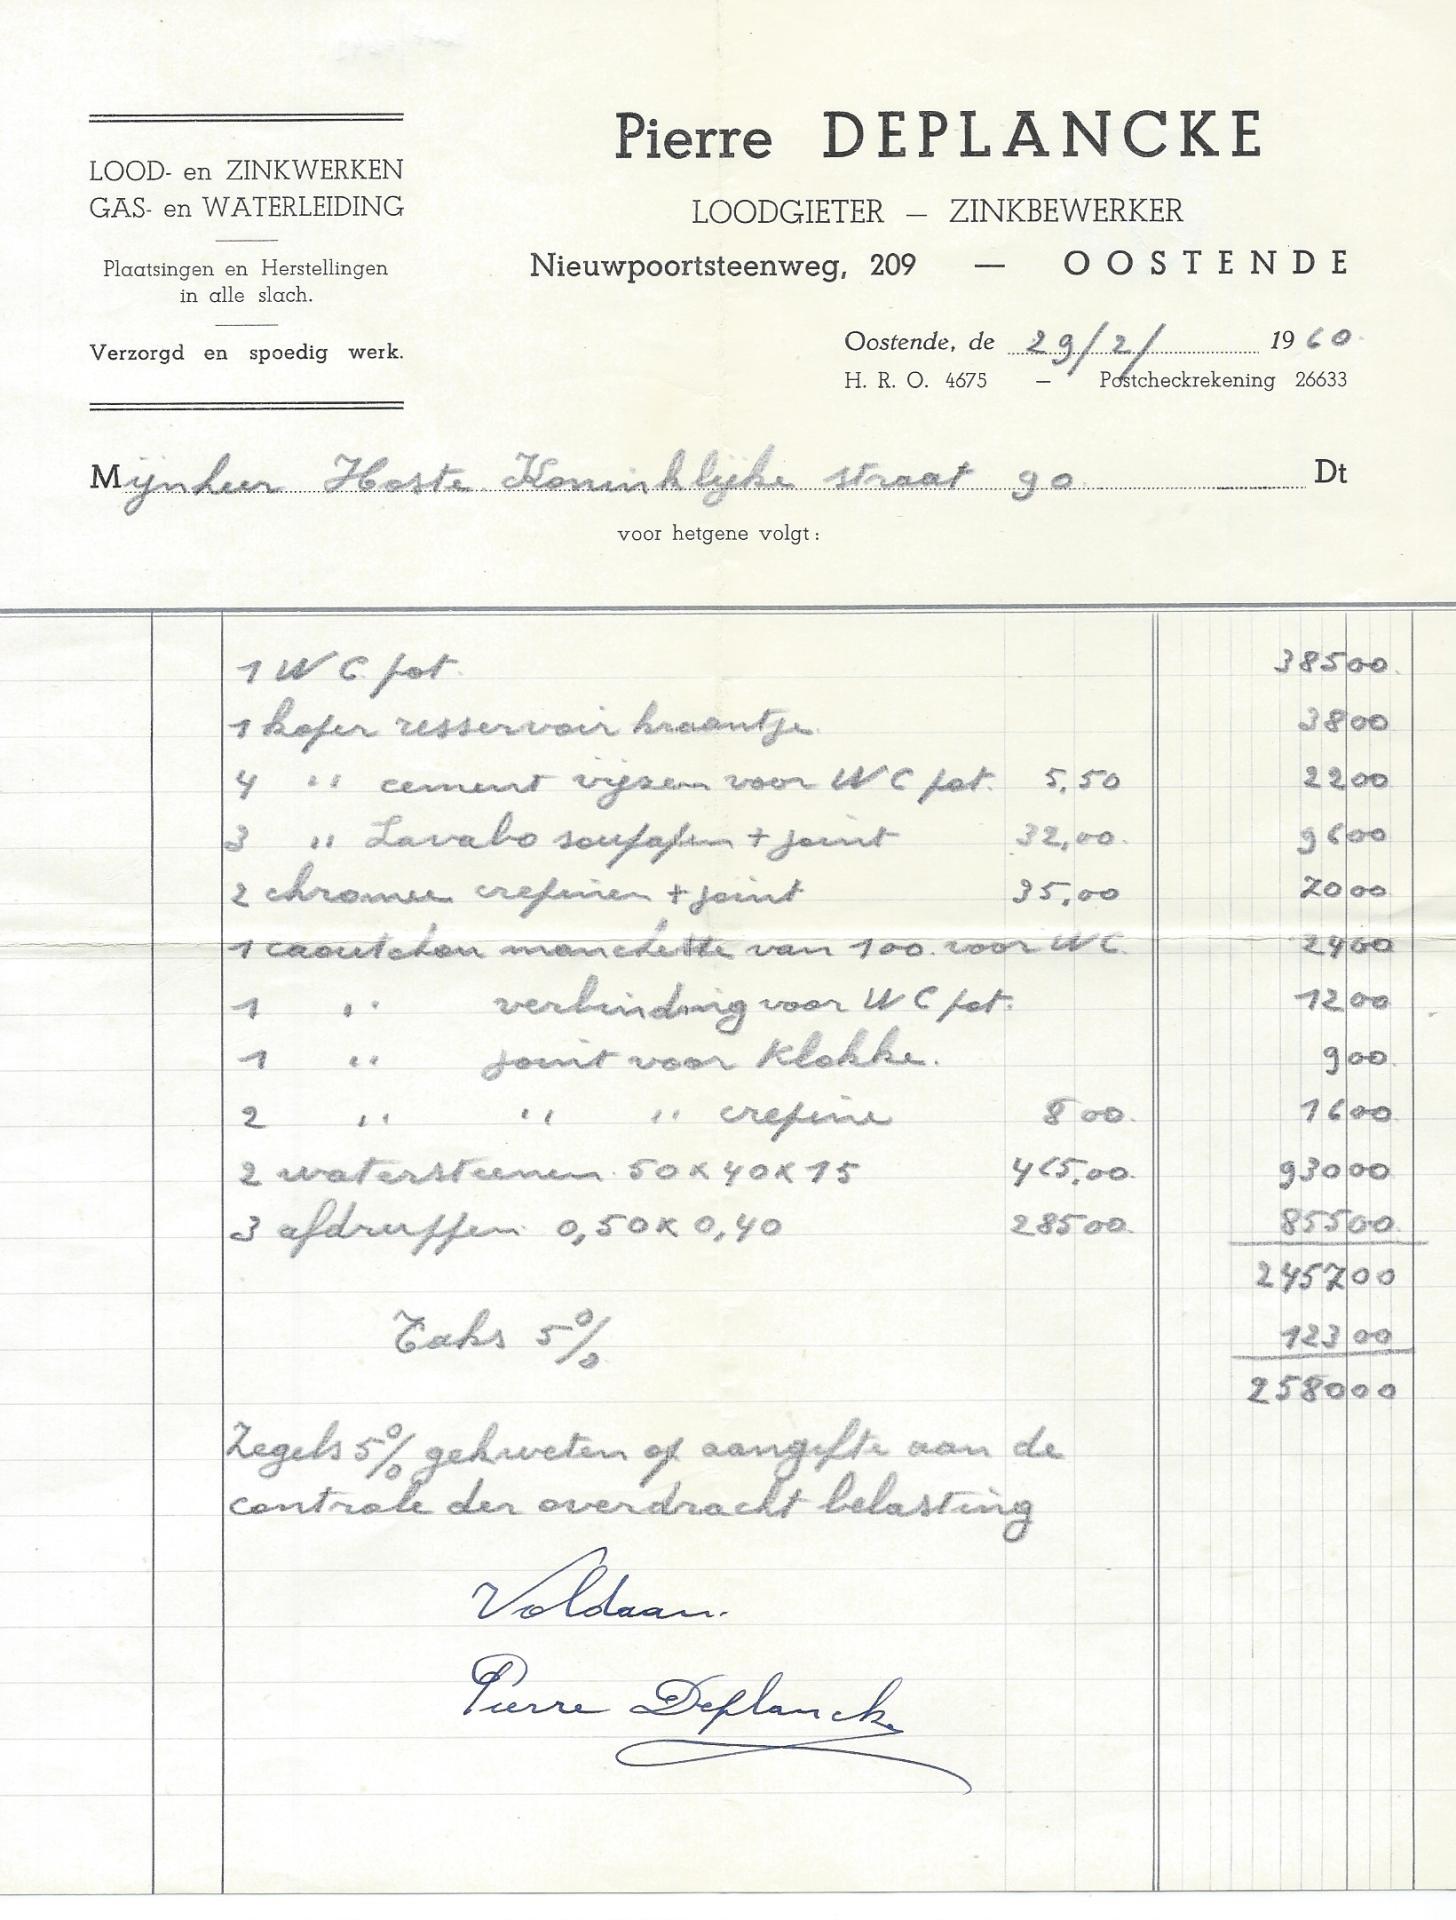 LOOD- en ZINKWERKEN
GAS- en WATERLEIDING
Plaatsingen en Herstellingen
in alle slach.
Verzorgd en spoedig werk.
Pierre DEPLANCKE
LOODGIETER — ZINKBEWERKER
Nieuwpoortsteenweg, 209 — OOSTENDE
Oostende, de 29/2/ 1960
H. R. O. 4675 — Postcheckrekening 26633
Mijnheer Hoste Koninklijke straat 90 Dt
voor hetgene volgt :
1 WC pot. 385 00
1 koper resservoir kraantje 38 00
4 '' cement vijzen voor WC pot. 5,50 22 00
3 '' Lavabo soupapen + joint 32,00 96 00
2 chromee crepinen + joint 35,00 70 00
1 caoutchou manchette van 100 voor WC 24 00
1 '' verbinding voor WC pot. 12 00
1 '' joint voor Klokke. 9 00
2 '' '' '' crepine 8 00 16 00
2 watersteenen 50 x 40 x 15 465,00 930 00
3 afdruppen 0,50 x 0,40 285 00 855 00
2457 00
Taks 5% 123 00
2580 00
Zegels 5% gekweten op aangifte aan de
controle der overdracht belasting
Voldaan.
Pierre Deplancke